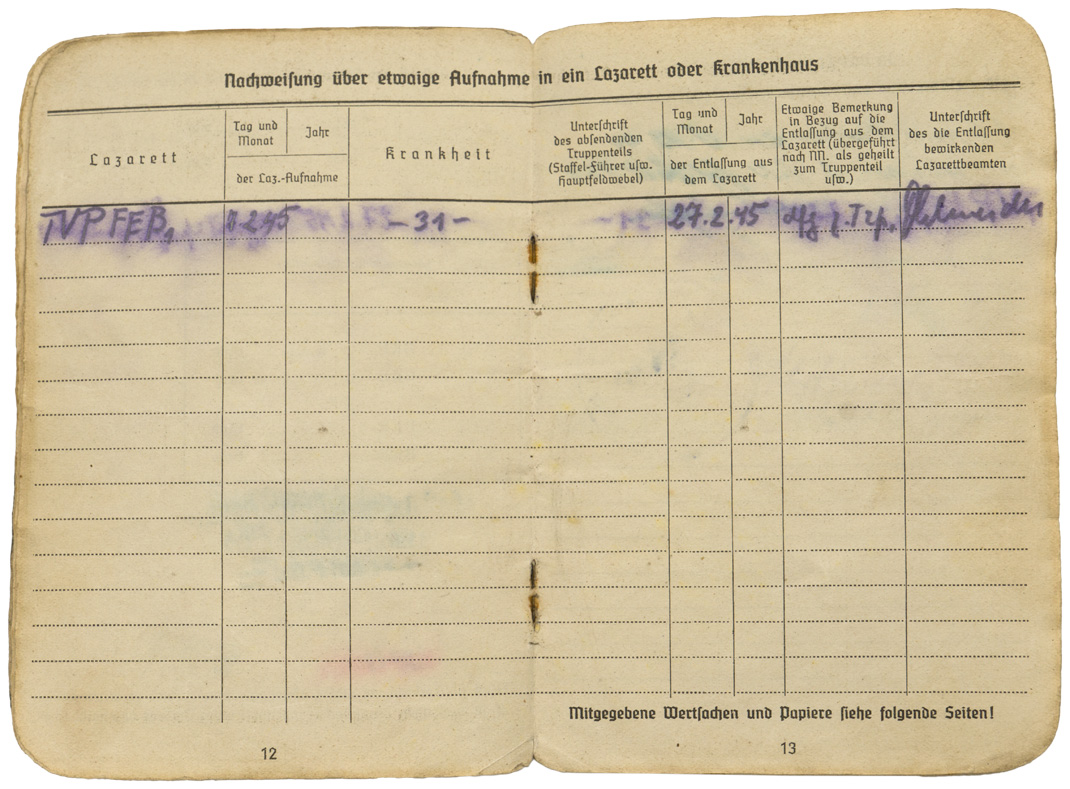 Nachweisung über etwaige Aufnahme in ein Lazarett oder Krankenhaus
Lazarett
Tag und
Monat
Jahr
der Laz.-Aufnahme
Krankheit
Unterschrift
des absendenden
Truppenteils
(Staffel-Führer usw.
Hauptfeldwebel)
Tag und
Monat
Jahr
der Entlassung aus
dem Lazarett
Etwaige Bemerkung
in Bezug auf die
Entlassung aus dem
Lazarett (übergeführt
nach NN. als geheilt
zum Truppenteil
usw.)
Unterschrift
des die Entlassung
bewirkenden
Lazarettbeamten
2.45
-31-
27.2.45
Mitgegebene Wertsachen und Papiere siehe folgende Seiten!
12
13